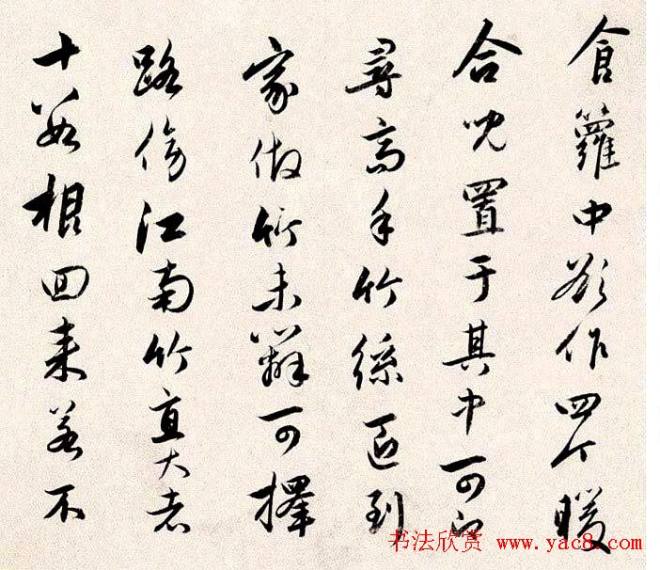 食籮中欲作四个暖
合兒置于其中可
尋高手竹絲匠到
家做竹未辦可擇
路傍江南竹直大者
十數根回来若不
书法欣赏 www.yac8.com